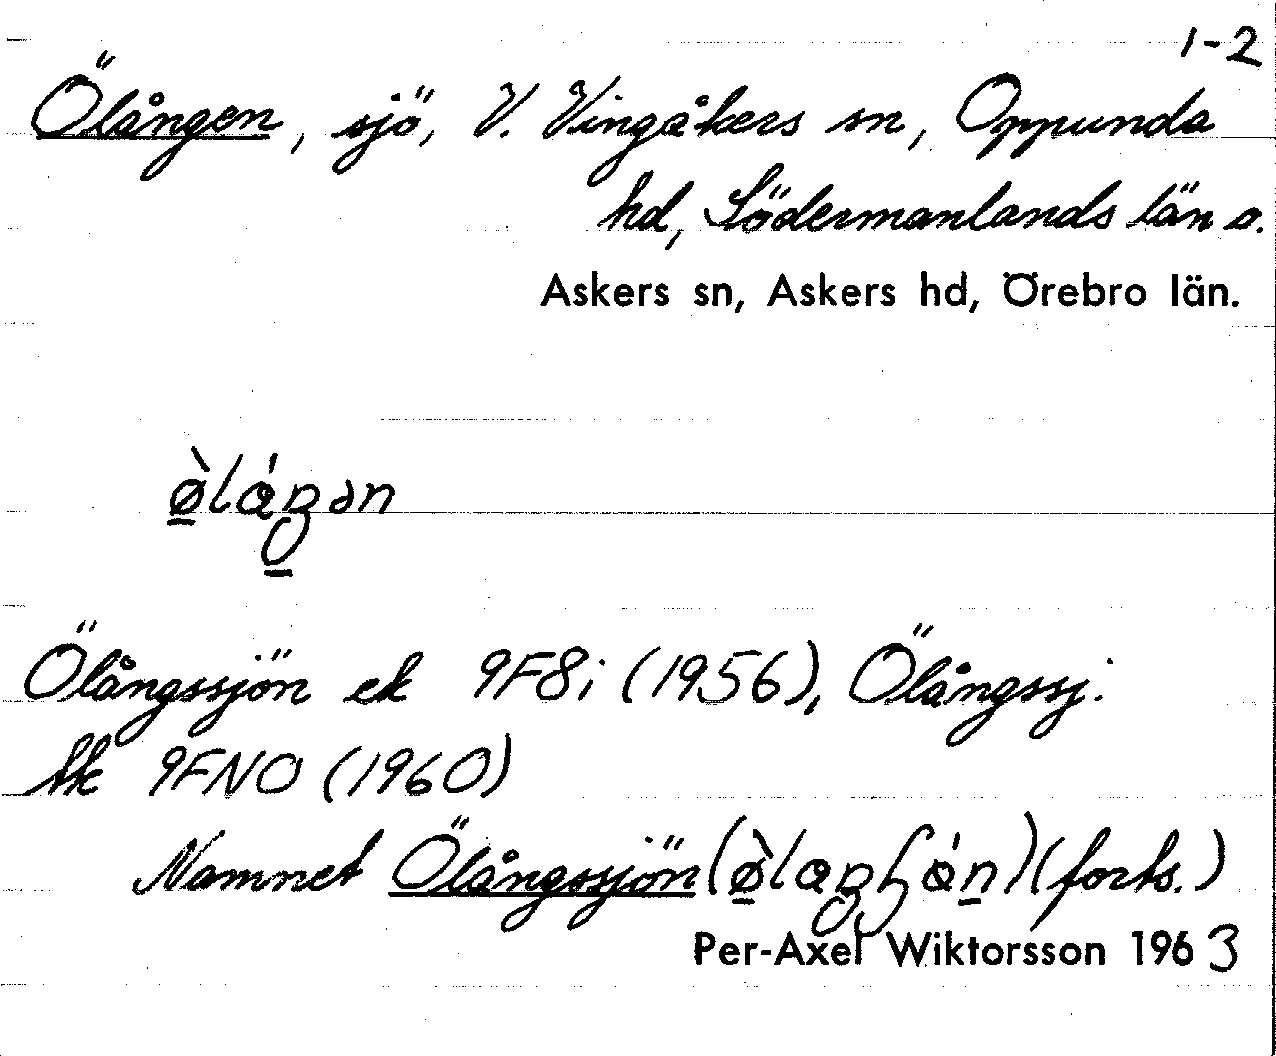 1-2
Ölången, sjö, V. Vingåkers sn, Oppunda
hd, Södermanlands län o.
Askers sn, Askers hd, Örebro län.
Ölångssjön ek 9F8i (1956), Ölångssj.
tk 9FNO (1960)
Namnet Ölångssjön (forts.)
Per-Axel Wiktorsson 1963